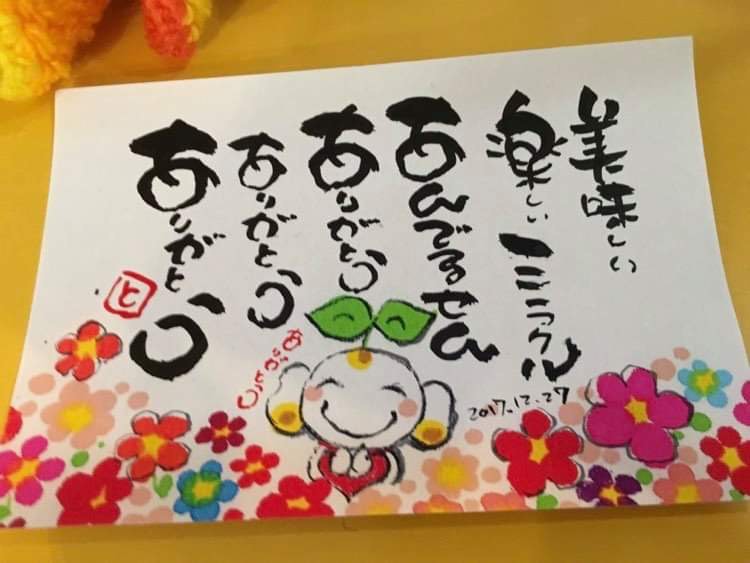 美味しい
楽しい ミラクル
あんでるせん
ありがとう
ありがとう
ありがとう
と
ありがとう
2017.12.27